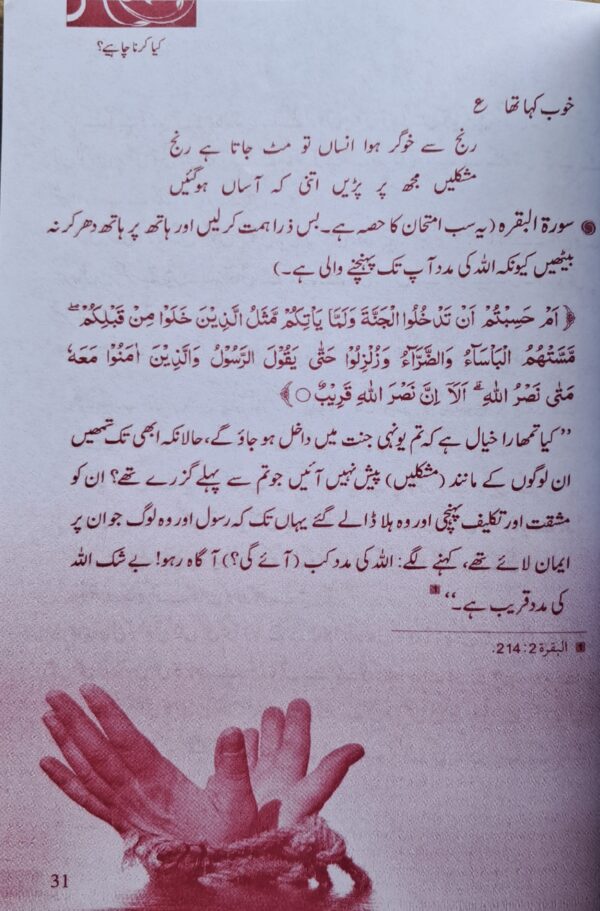 کیا کرنا چاہیے؟
خوب کہا تھا ع
رنج سے خوگر ہوا انساں تو مٹ جاتا ہے رنج
مشکلیں مجھ پر پڑیں اتنی کہ آساں ہوگئیں
سورة البقرہ (یہ سب امتحان کا حصہ ہے۔ بس ذرا ہمت کر لیں اور ہاتھ پر ہاتھ دھر کر نہ
بیٹھیں کیونکہ اللہ کی مدد آپ تک پہنچنے والی ہے۔)
﴿ اَمْ حَسِبْتُمْ اَنْ تَدْخُلُوا الْجَنَّةَ وَلَمَّا يَاْتِكُمْ مَّثَلُ الَّذِيْنَ خَلَوْا مِنْ قَبْلِكُمْ ۖ
مَسَّتْهُمُ الْبَاْسَآءُ وَالضَّرَّآءُ وَزُلْزِلُوْا حَتّٰى يَقُوْلَ الرَّسُوْلُ وَالَّذِيْنَ اٰمَنُوْا مَعَهٗ
مَتٰى نَصْرُ اللّٰهِ ۗ اَلَآ اِنَّ نَصْرَ اللّٰهِ قَرِيْبٌ ○ ﴾
”کیا تمھارا خیال ہے کہ تم یونہی جنت میں داخل ہو جاؤ گے، حالانکہ ابھی تک تمھیں
ان لوگوں کے مانند (مشکلیں) پیش نہیں آئیں جو تم سے پہلے گزرے تھے؟ ان کو
مشقت اور تکلیف پہنچی اور وہ ہلا ڈالے گئے یہاں تک کہ رسول اور وہ لوگ جو ان پر
ایمان لائے تھے، کہنے لگے: اللہ کی مدد کب (آئے گی؟) آگاہ رہو! بے شک اللہ
کی مدد قریب ہے۔“ 1
1 البقرة 2:214.
31